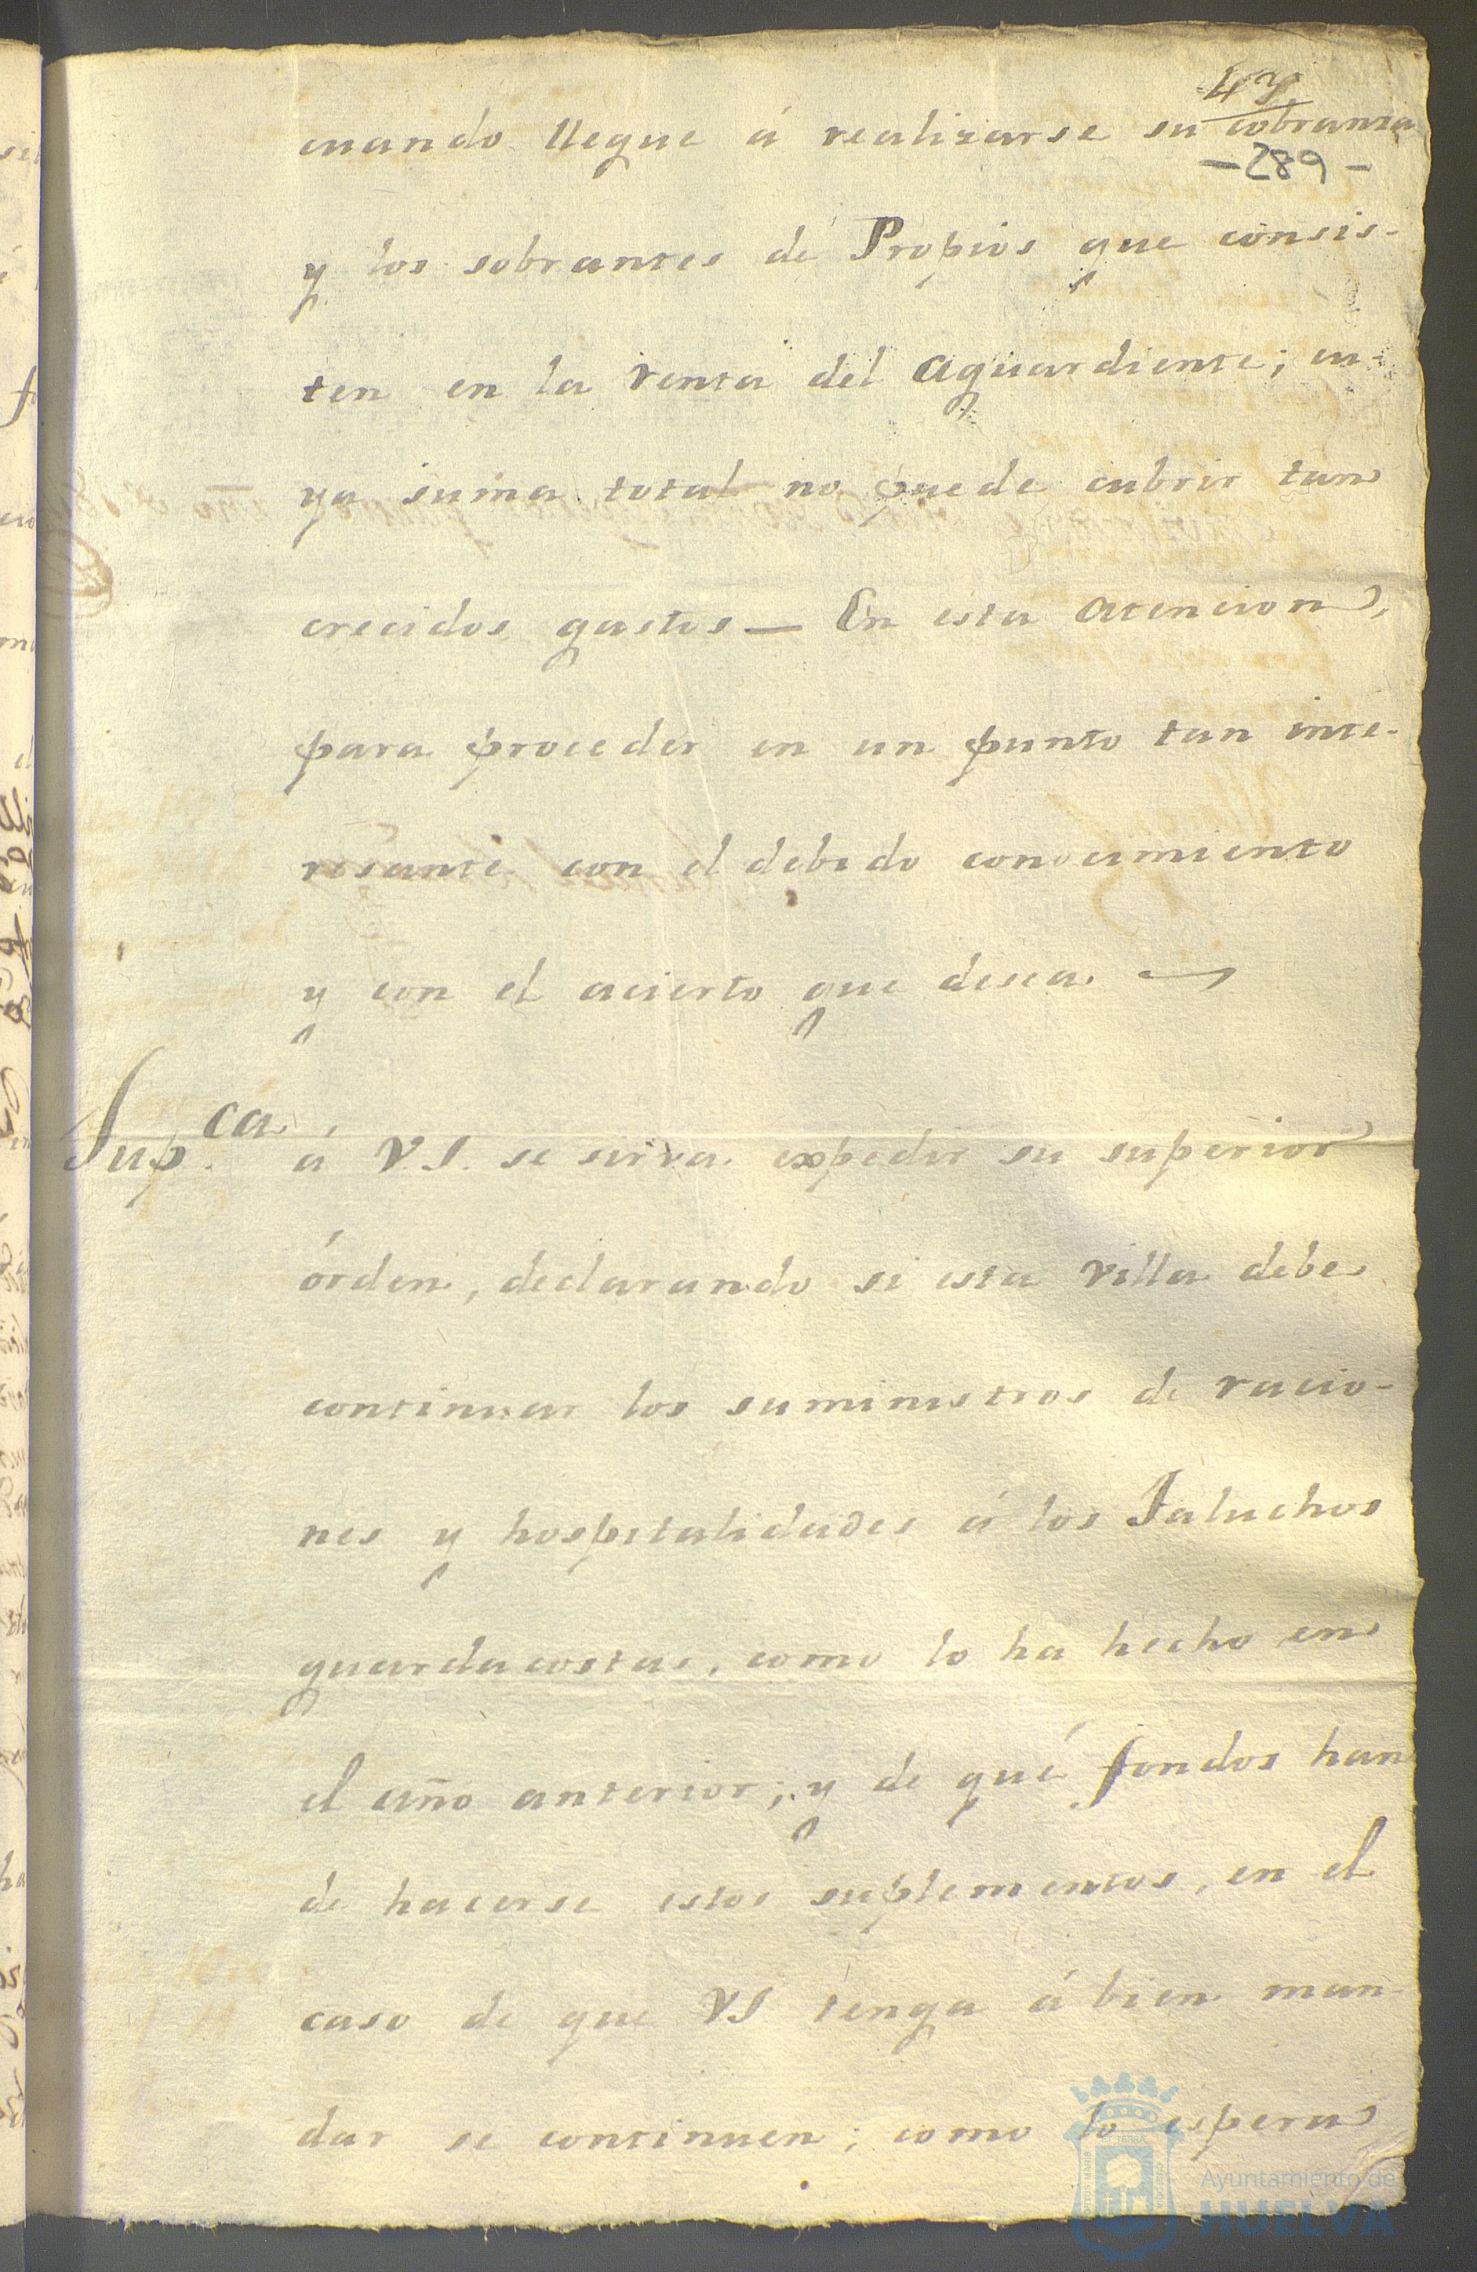 43
cuando llegue á realizarse su cobranza
-289-
y los sobrantes de Propios que consis-
ten en la renta del Aguardiente; cu-
ya suma total no puede cubrir tan
crecidos gastos — En esta atencion,
para proceder en un punto tan inte-
resante con el debido conocimiento
y con el acierto que desea. —
Sup.ca á V.S. se sirva expedir su superior
órden, declarando si esta villa debe
continuar los suministros de racio-
nes y hospitalidades á los Faluchos
guardacostas, como lo ha hecho en
el año anterior; y de qué fondos han
de hacerse estos suplementos, en el
caso de que VS tenga á bien man-
dar se continuen; como lo espera
Ayuntamiento de
HUELVA